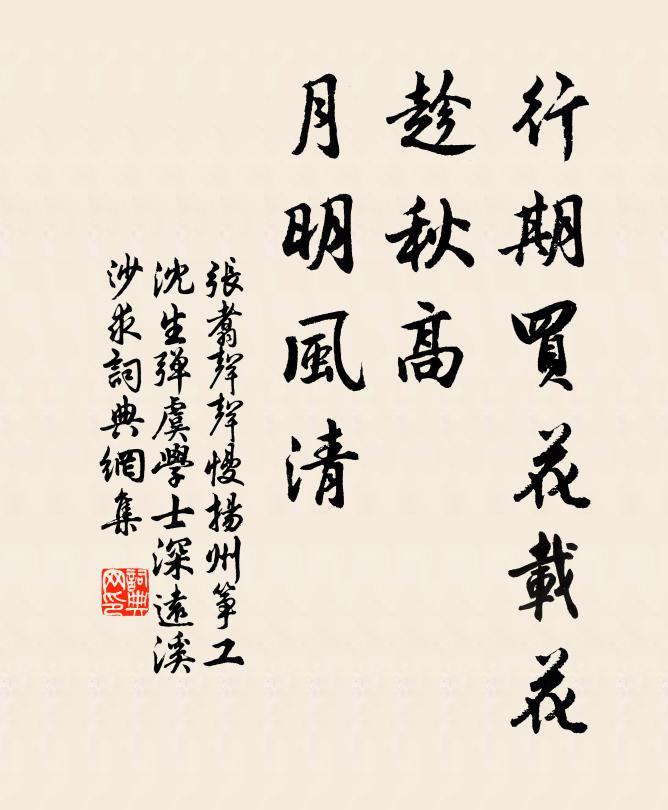 行期買花載花
趁秋高
月明風清
張翥聲聲慢揚州箏工
沈生彈虞學士深遠溪
沙求詞典網集
詞典
网印